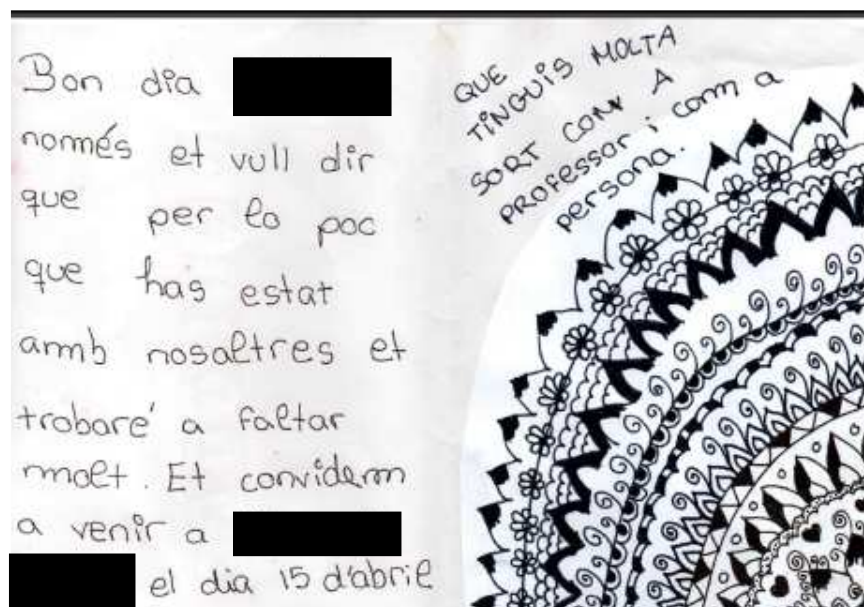 Bon dia
només et vull dir
que per lo poc
que has estat
amb nosaltres et
trobaré a faltar
molt. Et convidem
a venir a
el dia 15 d'abril
QUE
TINGUIS MOLTA
SORT COM A
PROFESSOR i com a
persona.